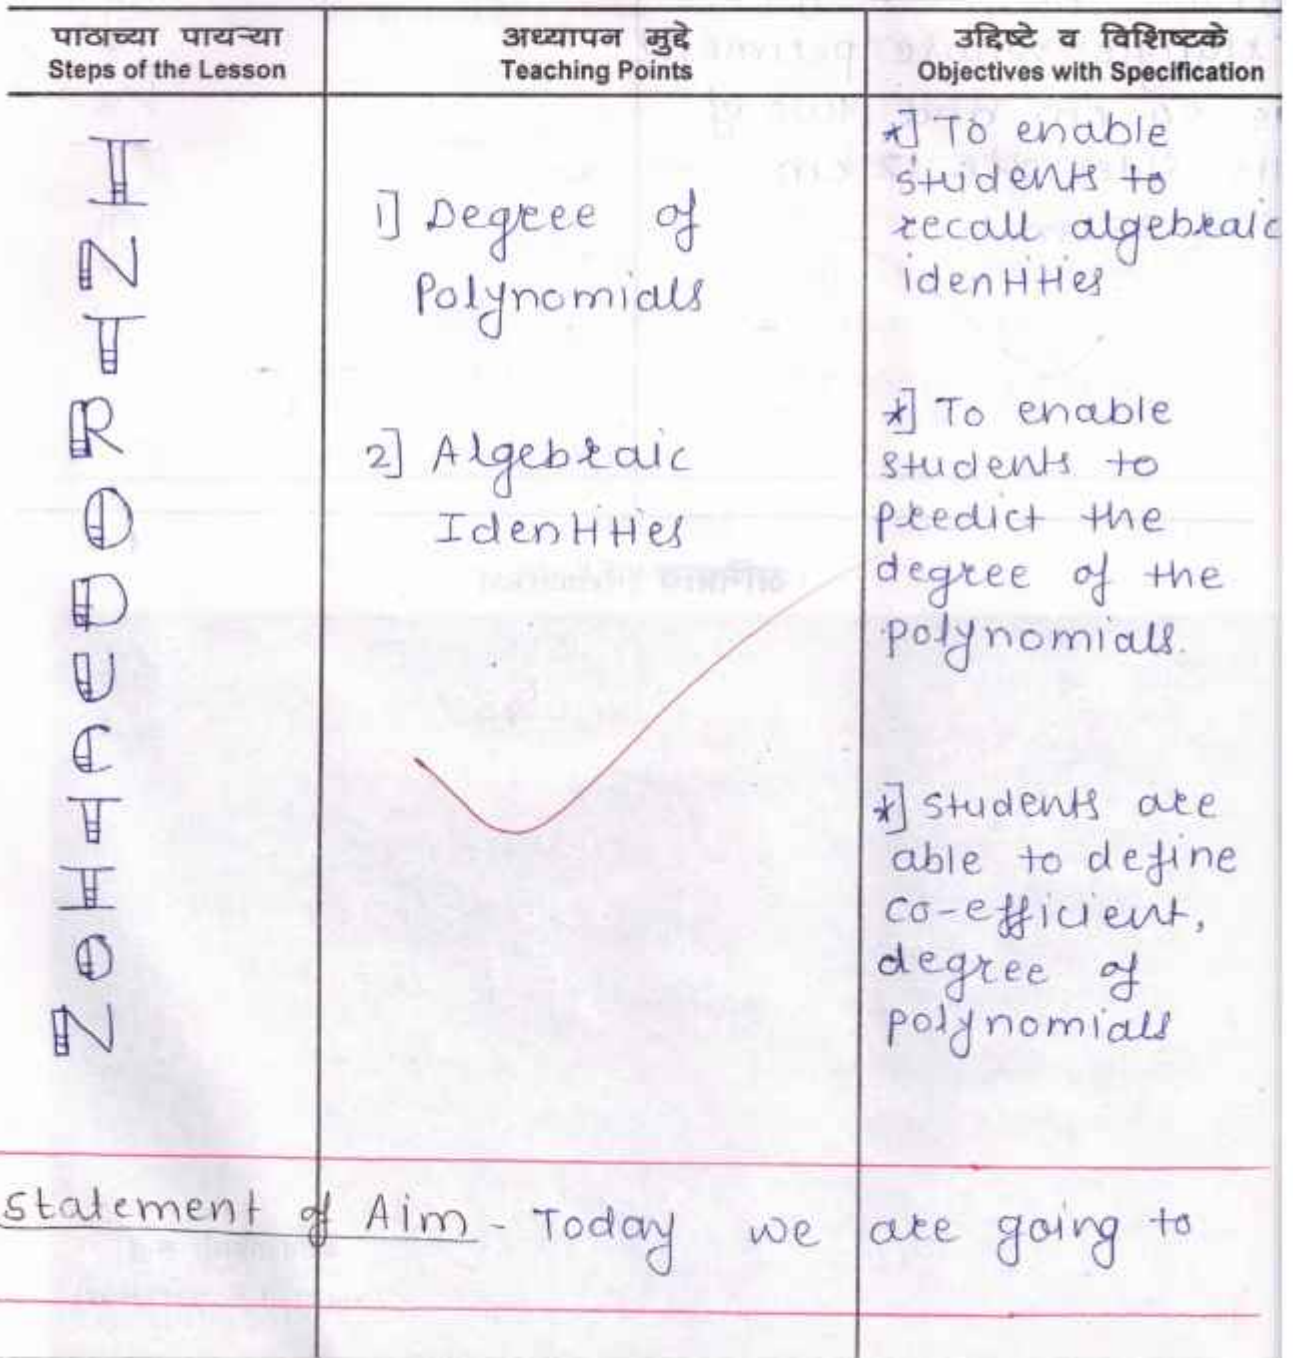 पाठाच्या पायऱ्या
Steps of the Lesson
अध्यापन मुद्दे
Teaching Points
उद्दिष्टे व विशिष्टके
Objectives with Specification
I
N
T
R
O
D
U
C
T
I
O
N
1] Degree of
Polynomials
2] Algebraic
Identities
*] To enable
students to
recall algebraic
identities
*] To enable
students to
predict the
degree of the
polynomials.
*] Students are
able to define
co-efficient,
degree of
polynomials
Statement of Aim - Today we are going to